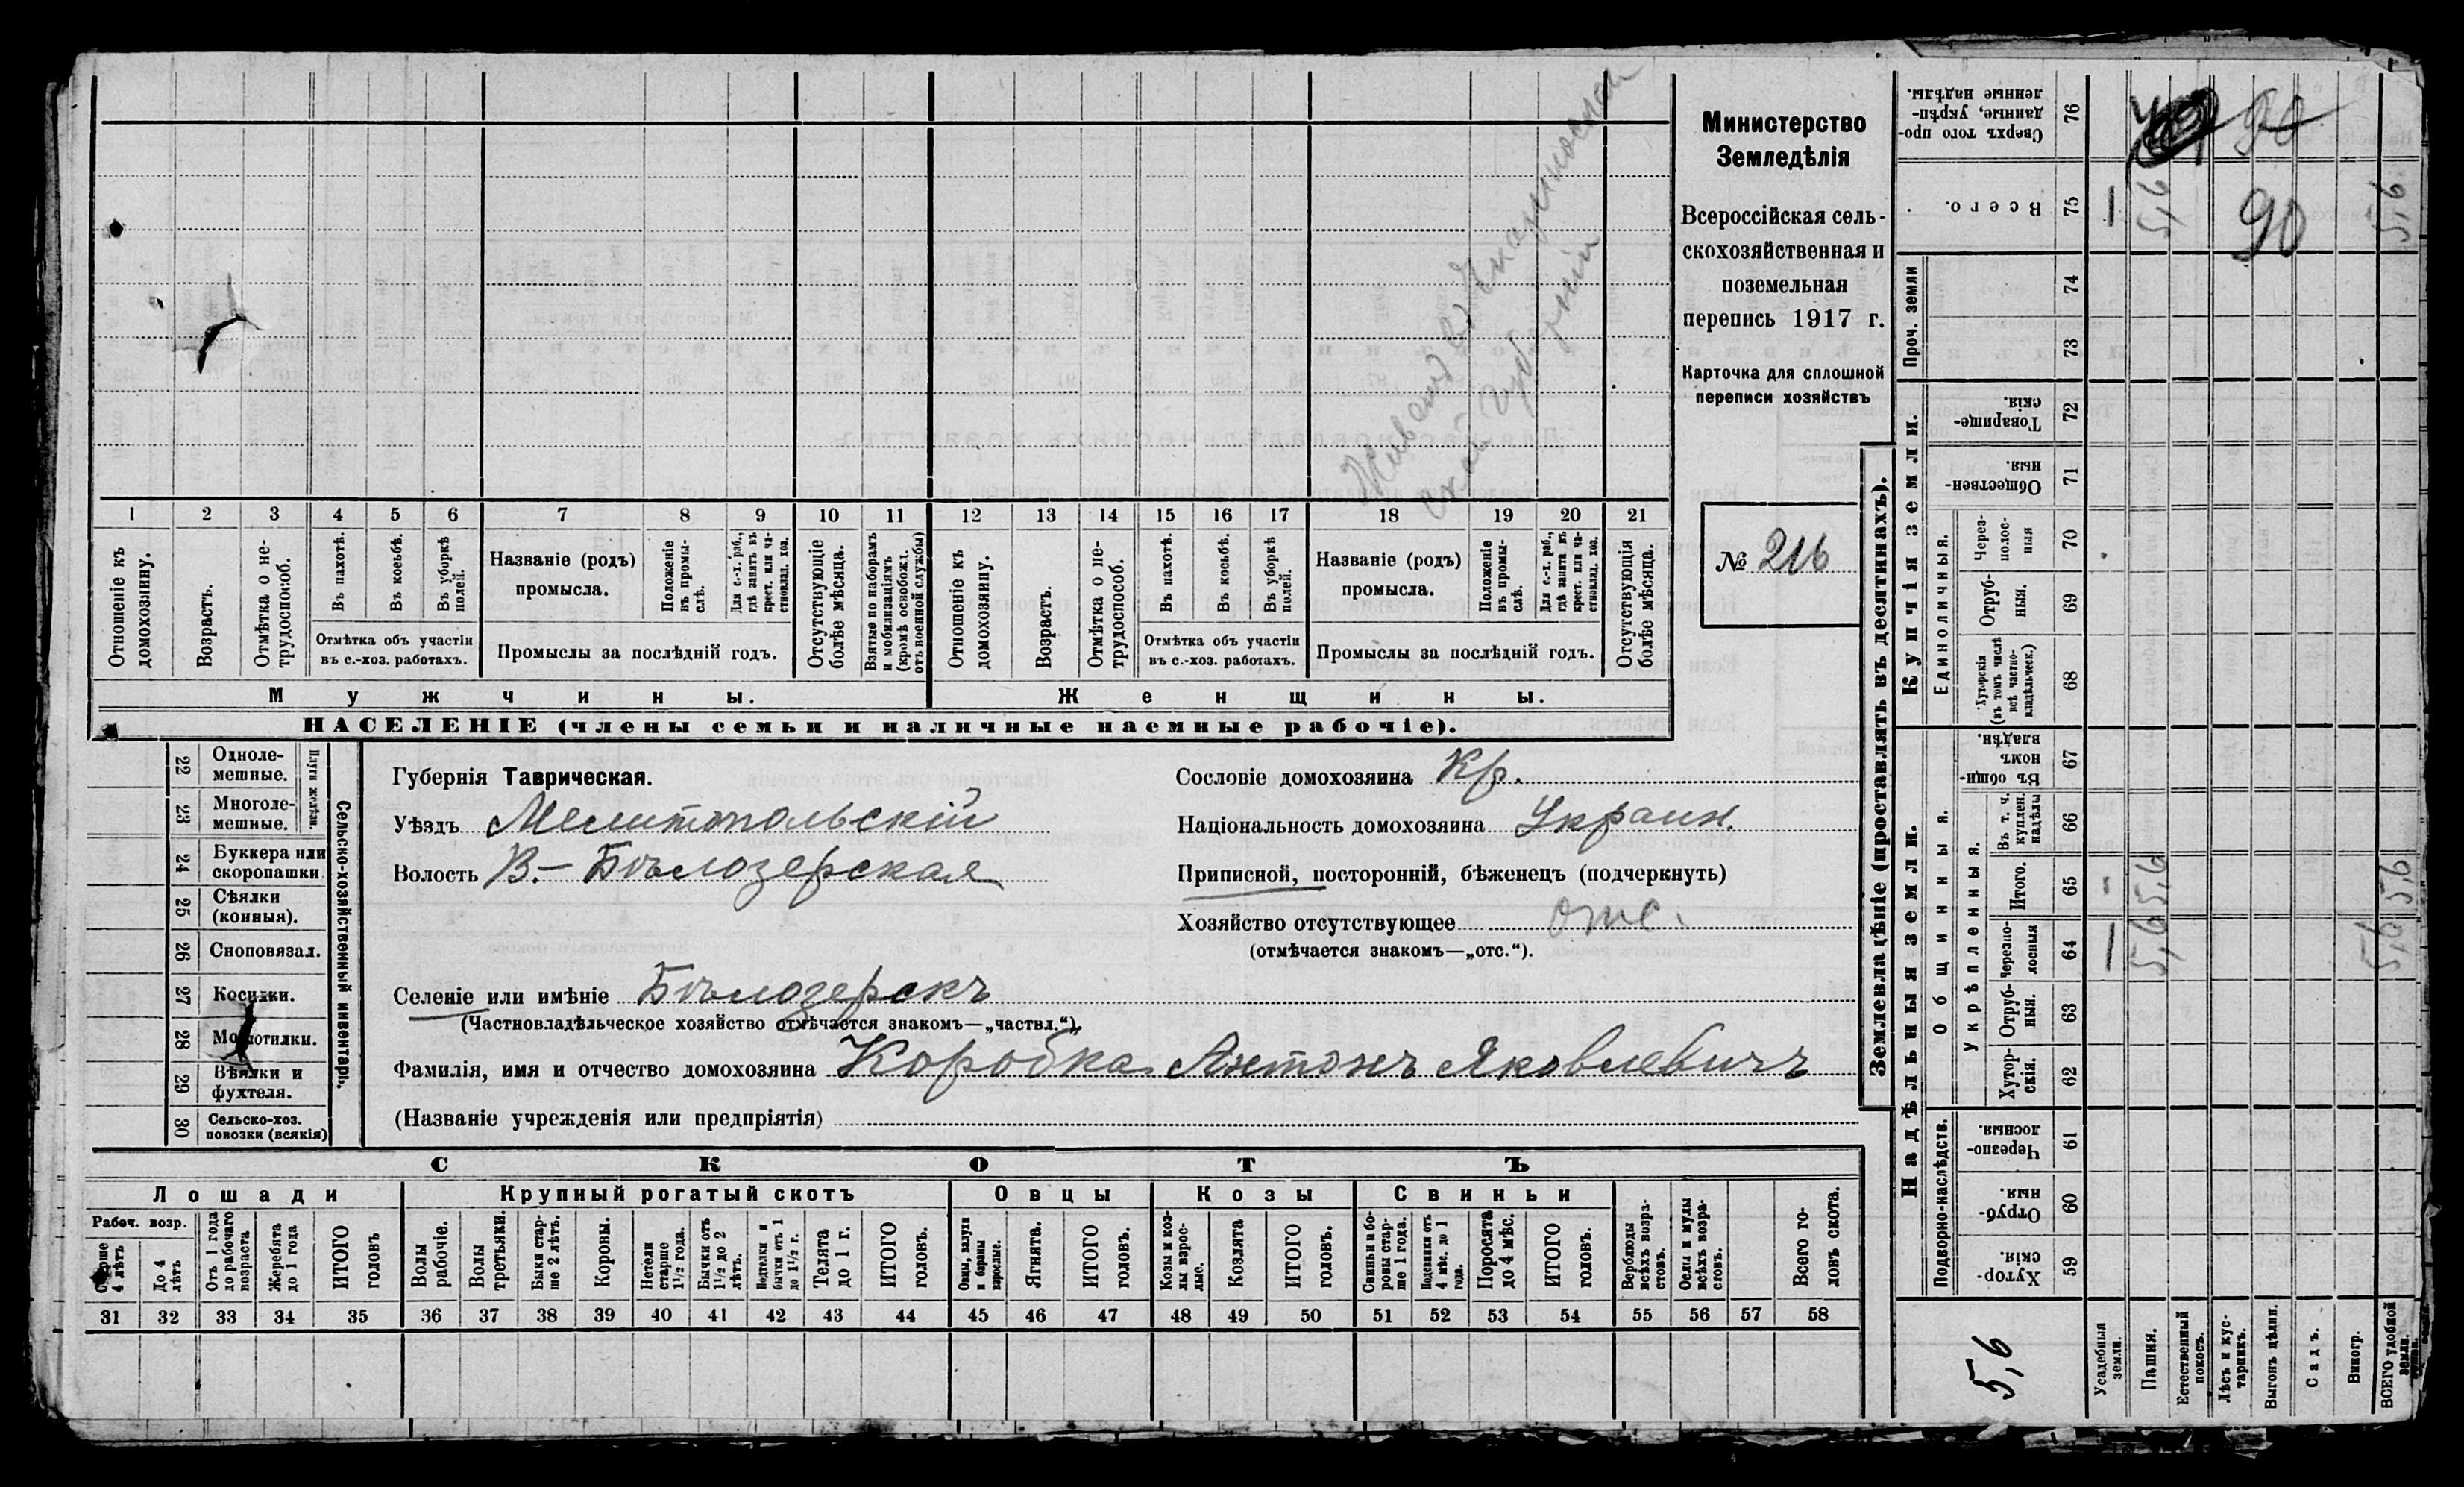 Министерство
Земледѣлія
Всероссійская сель-
скохозяйственная и
поземельная
перепись 1917 г.
Карточка для сплошной
переписи хозяйствъ
№ 216
1 2 3 4 5 6 7 8 9 10 11 12 13 14 15 16 17 18 19 20 21
Отношеніе къ домохозяину.
Возрастъ.
Отмѣтка о не-трудоспособ.
Въ пахотѣ.
Въ косьбѣ.
Въ уборкѣ полей.
Отмѣтка объ участіи
въ с.-хоз. работахъ.
Названіе (родъ)
промысла.
Положеніе въ промы-слѣ.
Для с.-х. раб., гдѣ занятъ въ крест. или ча-стновлад. хоз.
Промыслы за послѣдній годъ.
Отсутствующіе болѣе мѣсяца.
Взятые по наборамъ и мобилизаціямъ (кромѣ освобожд. отъ военной службы)
Отношеніе къ домохозяину.
Возрастъ.
Отмѣтка о не-трудоспособ.
Въ пахотѣ.
Въ косьбѣ.
Въ уборкѣ полей.
Отмѣтка объ участіи
въ с.-хоз. работахъ.
Названіе (родъ)
промысла.
Положеніе въ промы-слѣ.
Для с.-х. раб., гдѣ занятъ въ крест. или ча-стновлад. хоз.
Промыслы за послѣдній годъ.
Отсутствующія болѣе мѣсяца.
Мужчины.
Женщины.
НАСЕЛЕНІЕ (члены семьи и наличные наемные рабочіе).
Сельско-хозяйственный инвентарь.
Плуги желѣзн.
22 Одноле-мешные.
23 Многоле-мешные.
24 Буккера или скоропашки
25 Сѣялки (конныя).
26 Сноповязал.
27 Косилки.
28 Молотилки.
29 Вѣялки и фухтеля.
30 Сельско-хоз. повозки (всякія)
Губернія Таврическая.
Уѣздъ Мелитопольскій
Волость В.-Бѣлозерская
Селеніе или имѣніе Бѣлозерскъ
(Частновладѣльческое хозяйство отмѣчается знакомъ—„частвл.“).
Фамилія, имя и отчество домохозяина Коробка Антонъ Яковлевичъ
(Названіе учрежденія или предпріятія)
Сословіе домохозяина Кр.
Національность домохозяина Украин.
Приписной, посторонній, бѣженецъ (подчеркнуть)
Хозяйство отсутствующее отс.
(отмѣчается знакомъ—„отс.“).
СКОТЪ
Лошади
Крупный рогатый скотъ
Овцы
Козы
Свиньи
Рабоч. возр.
Старше 4 лѣтъ
До 4 лѣтъ
Отъ 1 года до рабочаго возраста
Жеребята до 1 года
ИТОГО головъ
Волы рабочіе.
Волы третьяки.
Быки стар-ше 2 лѣтъ.
Коровы.
Нетели старше 1½ года.
Бычки отъ 1½ до 2 лѣтъ.
Подтелки и бычки отъ 1 до 1½ г.
Телята до 1 г.
ИТОГО головъ.
Овцы, валухи и бараны взрослые.
Ягнята.
ИТОГО головъ.
Козы и коз-лы взрос-лые.
Козлята
ИТОГО головъ.
Свиньи и бо-ровы стар-ше 1 года.
Подсвинки отъ 4 мѣс. до 1 года.
Поросята до 4 мѣс.
ИТОГО головъ.
Верблюды всѣхъ возра-стовъ.
Ослы и мулы всѣхъ возра-стовъ.
Всего го-ловъ скота.
31 32 33 34 35 36 37 38 39 40 41 42 43 44 45 46 47 48 49 50 51 52 53 54 55 56 57 58
Землевладѣніе (проставлять въ десятинахъ).
Надѣльныя земли.
Купчія земли.
Проч. земли
Подворно-наслѣдств.
Общинныя.
Укрѣпленныя.
Единоличныя.
59 Хутор-скія.
60 Отруб-ныя.
61 Черезпо-лосныя.
62 Хутор-скія.
63 Отруб-ныя.
64 Черезпо-лосныя
65 Итого.
66 Въ т. ч. куплен. надѣлы
67 Въ общин-номъ владѣн.
68 Хуторскія (въ томъ числѣ всѣ частно-владѣльческ.)
69 Отруб-ныя.
70 Через-полос-ныя
71 Обществен-ныя.
72 Товарище-скія.
73
74
75 Всего.
76 Сверхъ того про-данные, укрѣп-ленные надѣлы.
5,6
Усадебныя земли.
Пашня.
Естественный покосъ.
Лѣсъ и кус-тарникъ.
Выгонъ цѣлин.
Садъ.
Виногр.
ВСЕГО удобной земли.
5,6 5,6
5,6
5,6 5,6
5,6
90
90